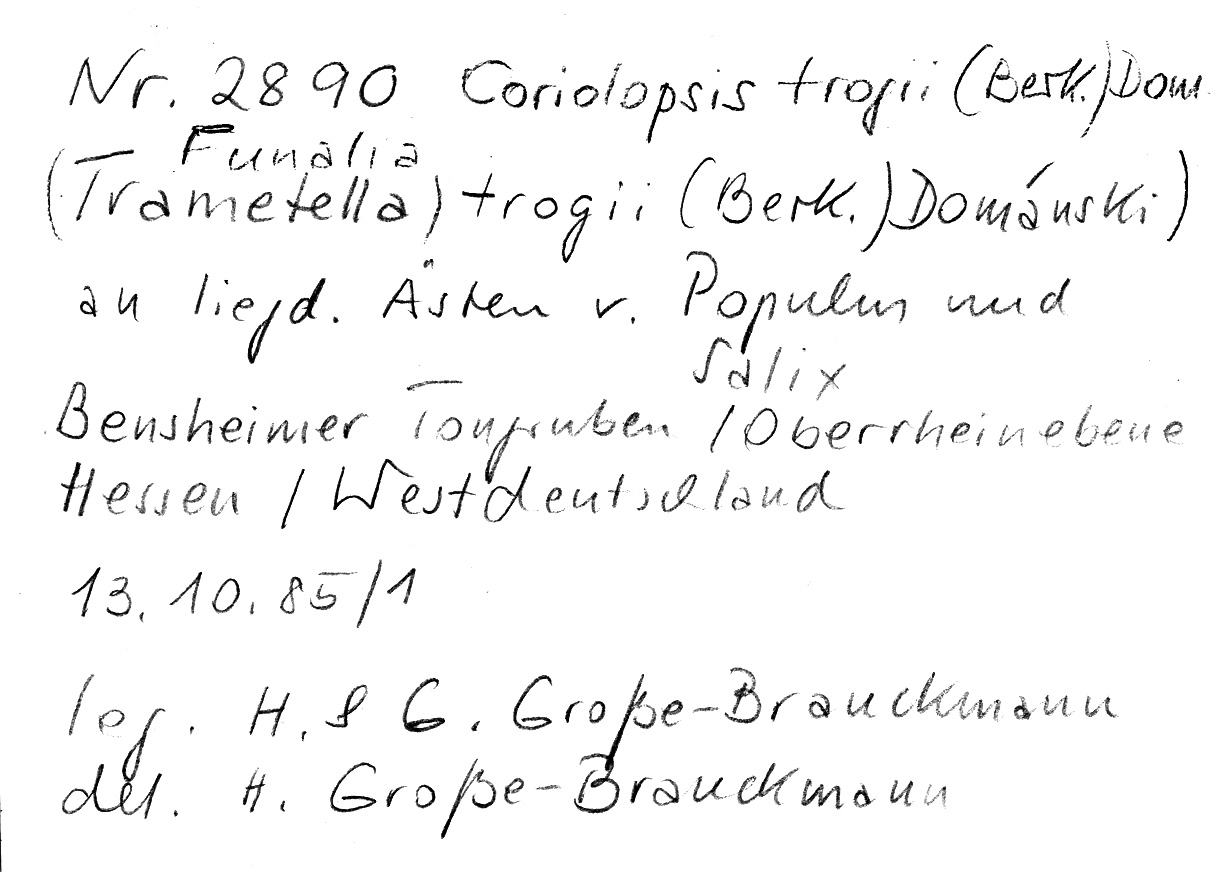 Nr. 2890 Coriolopsis trogii (Berk.) Dom.
Funalia
(Trametella) trogii (Berk.) Dománski)
an liegd. Ästen v. Populus und
Salix
Bensheimer Tongruben / Oberrheinebene
Hessen / Westdeutschland
13. 10. 85/1
leg. H. & G. Große-Brauckmann
det. H. Große-Brauckmann